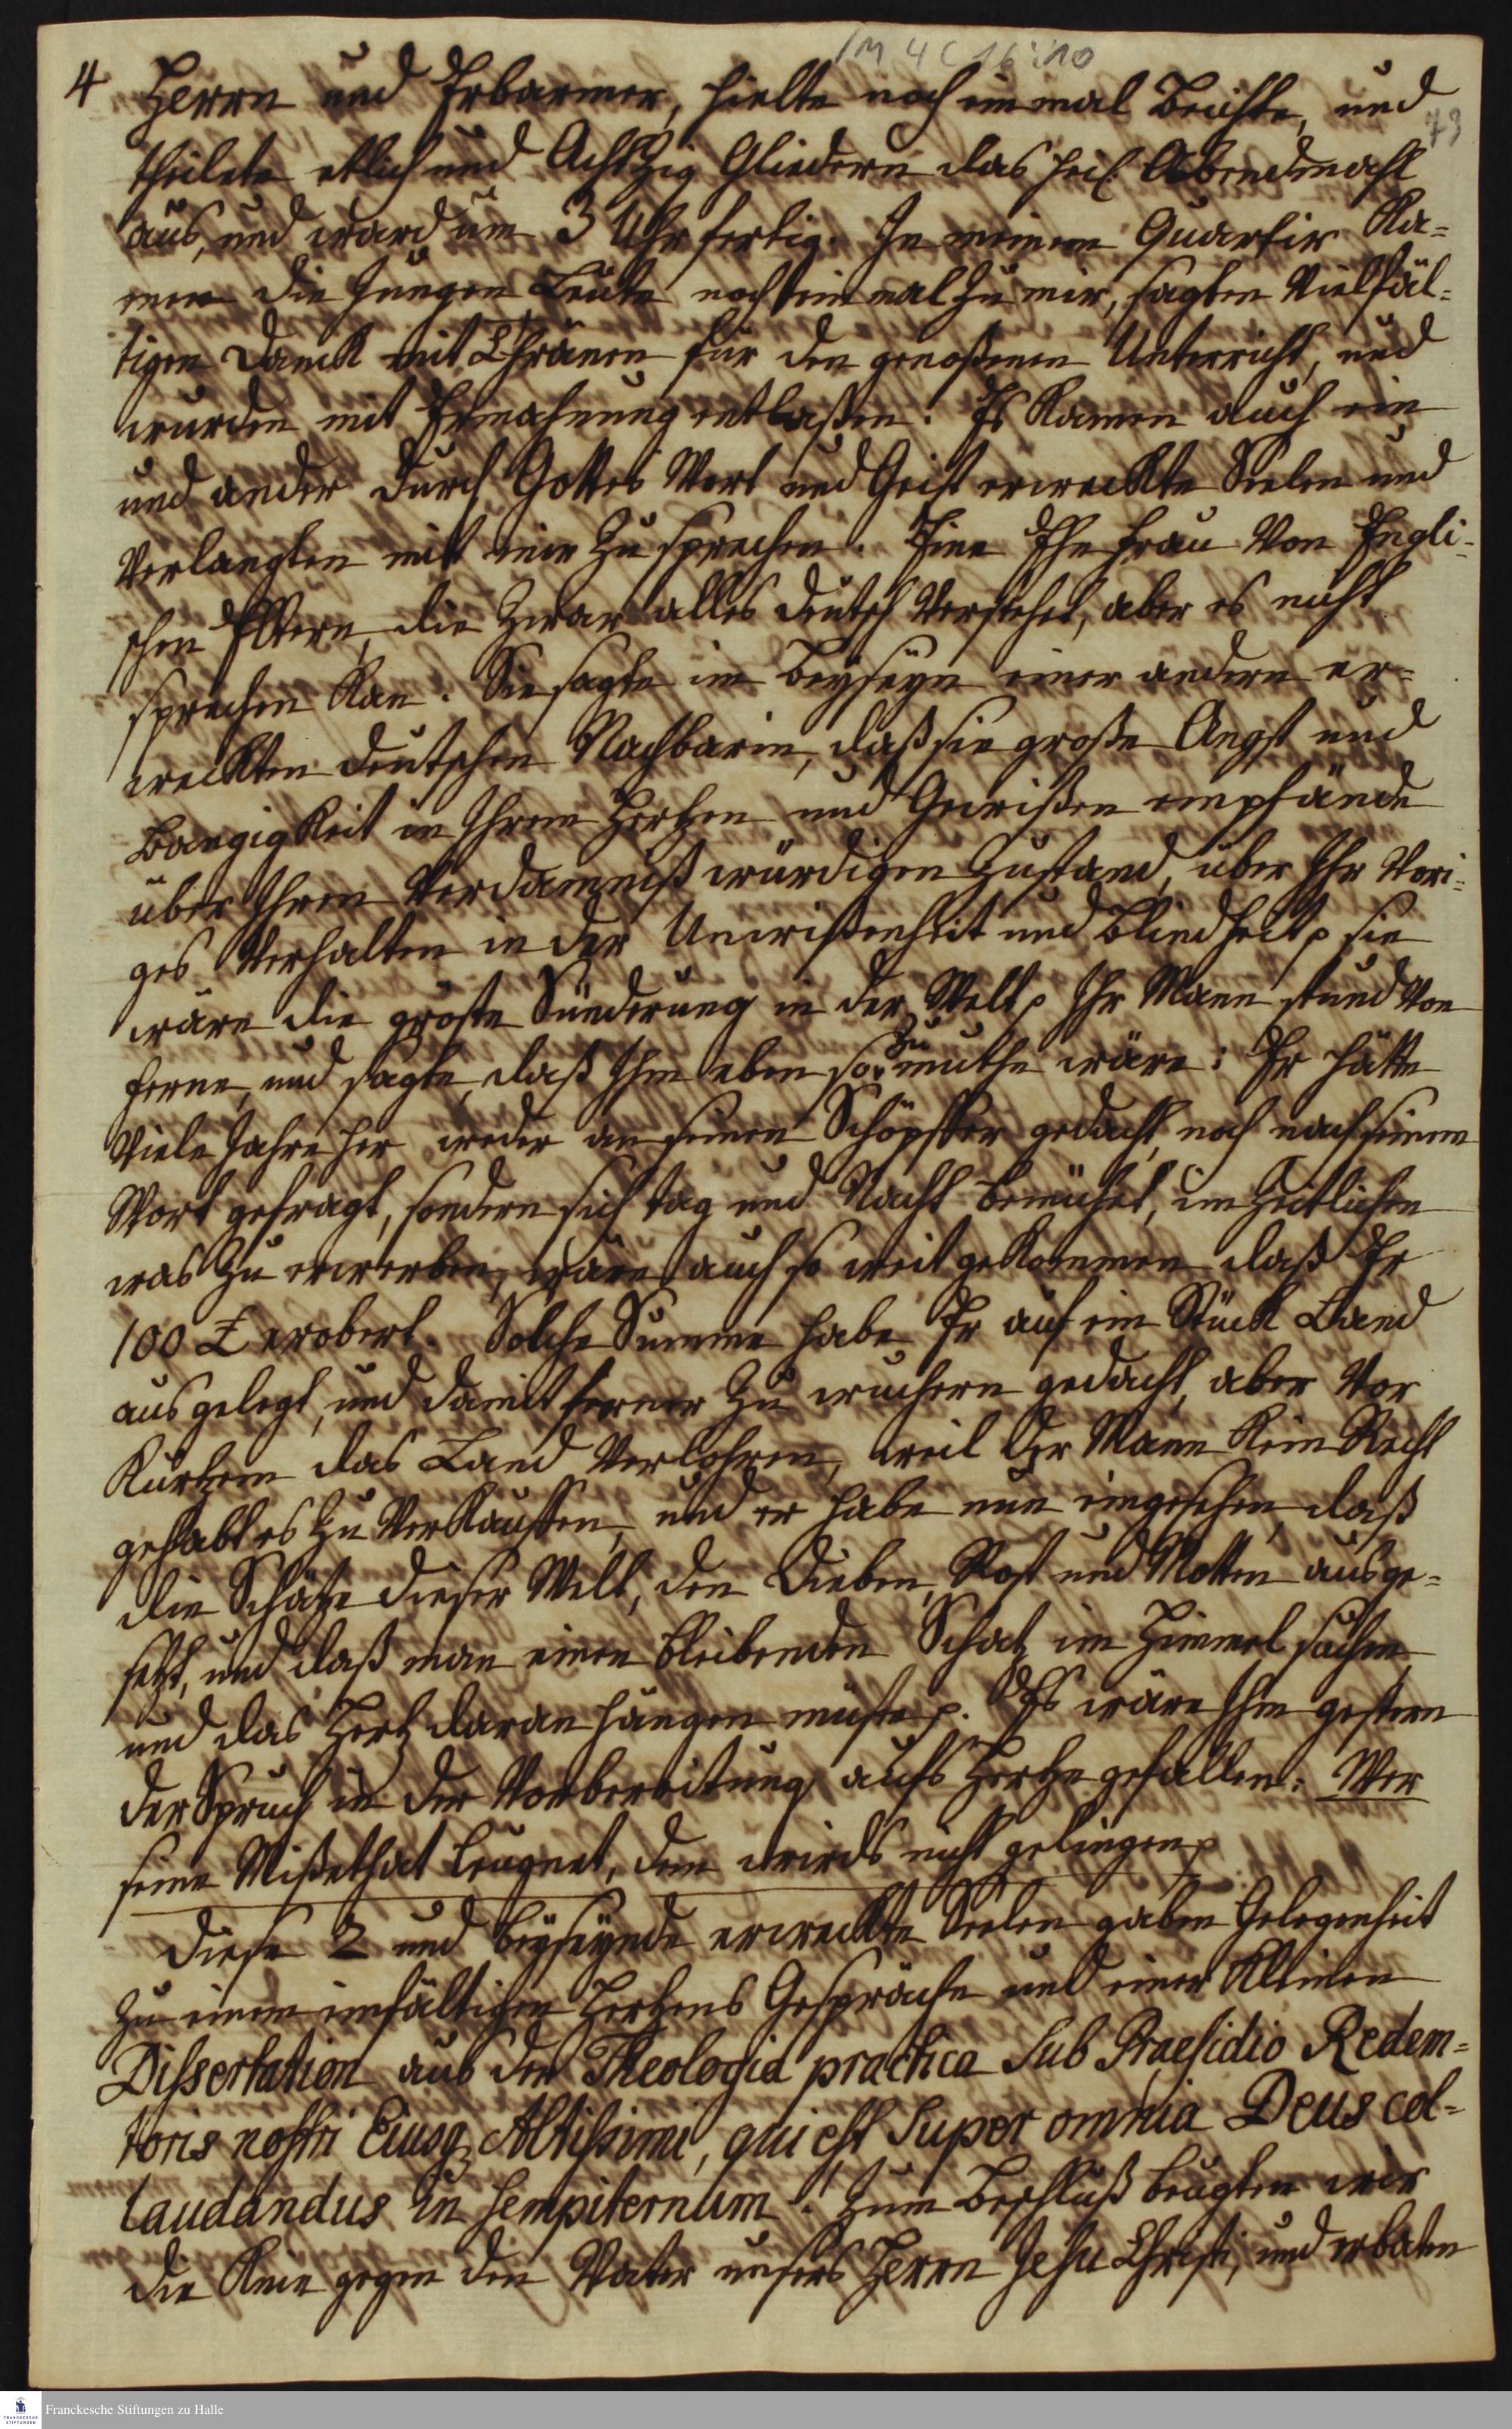 /M 4 C 16:10
73
4 Herrn und Erbarmer, hielte noch einmal Beichte, und
theilete etlich und Achtzig Gliedern das heil. Abendmahl
aus, und ward um 3 Uhr fertig. In meinem Quartir Ka=
men die Jungen Leute noch einmal zu mir, sagten Vielfäl=
tigen Danck mit Thränen für den genoßenen Unterricht, und
wurden mit Ermahnung entlaßen. Es Kamen auch ein
und ander durch Gottes Wort und Geist erweckte Seelen und
Verlangten mit mir zu sprechen. Eine Ehe frau Von Engli=
schen Eltern, die zwar alles deutsch Verstehet, aber es nicht
sprechen Kan. Sie sagte im Beyseyn einer andern er=
weckten deutschen Nachbarin, daß sie große Angst und
Bangigkeit in Ihrem Hertzen und Gewißen empfände
über Ihren Verdamniß würdigen Zustand, über Ihr Vori=
ges Verhalten in der Unwißenheit und Blindheit p sie
wäre die gröste Sünderung in der Welt p Ihr Mann stund Von
ferne, und sagte, daß Ihm eben so zu muthe wäre: Er hätte
Viele Jahre her weder an seinen Schöpffer gedacht, noch nach seinem
Wort gefragt, sondern sich tag und Nacht bemühet, im Zeitlichen
was zu erwerben, wäre auch so weit gekommen daß Er
100 £ erobert. Solche Summe habe Er auf ein Stück Land
ausgelegt, und damit ferner zu wuchern gedacht, aber Vor
Kurtzem das Land Verlohren, weil der Mann Kein Recht
gehabt es zu Verkauffen, und er habe nun eingesehen, daß
die Schätze dieser Welt, den Dieben, Rost und Motten ausge=
setzt, und daß man einen bleibenden Schatz im Himmel suchen
und das Hertz daran hängen müste p. Es wäre Ihm gestern
der Spruch in der Vorbereitung aufs Hertze gefallen: Wer
seine Mißethat leugnet, dem wirds nicht gelingen p
Diese 2 und beyseynde erweckte Seelen gaben Gelegenheit
zu einem einfältigen Hertzens Gespräche und einer Kleinen
Dissertation aus der Theologia practica sub Praesidio Redem=
toris nostri Eiusq Altissimi, qui est super omnia Deus col=
laudandus in sempiternum! Zum Beschluß beugten wir
die Knie gegen den Vater unsers Herrn Jesu Christi, und erbaten
Franckesche Stiftungen zu Halle